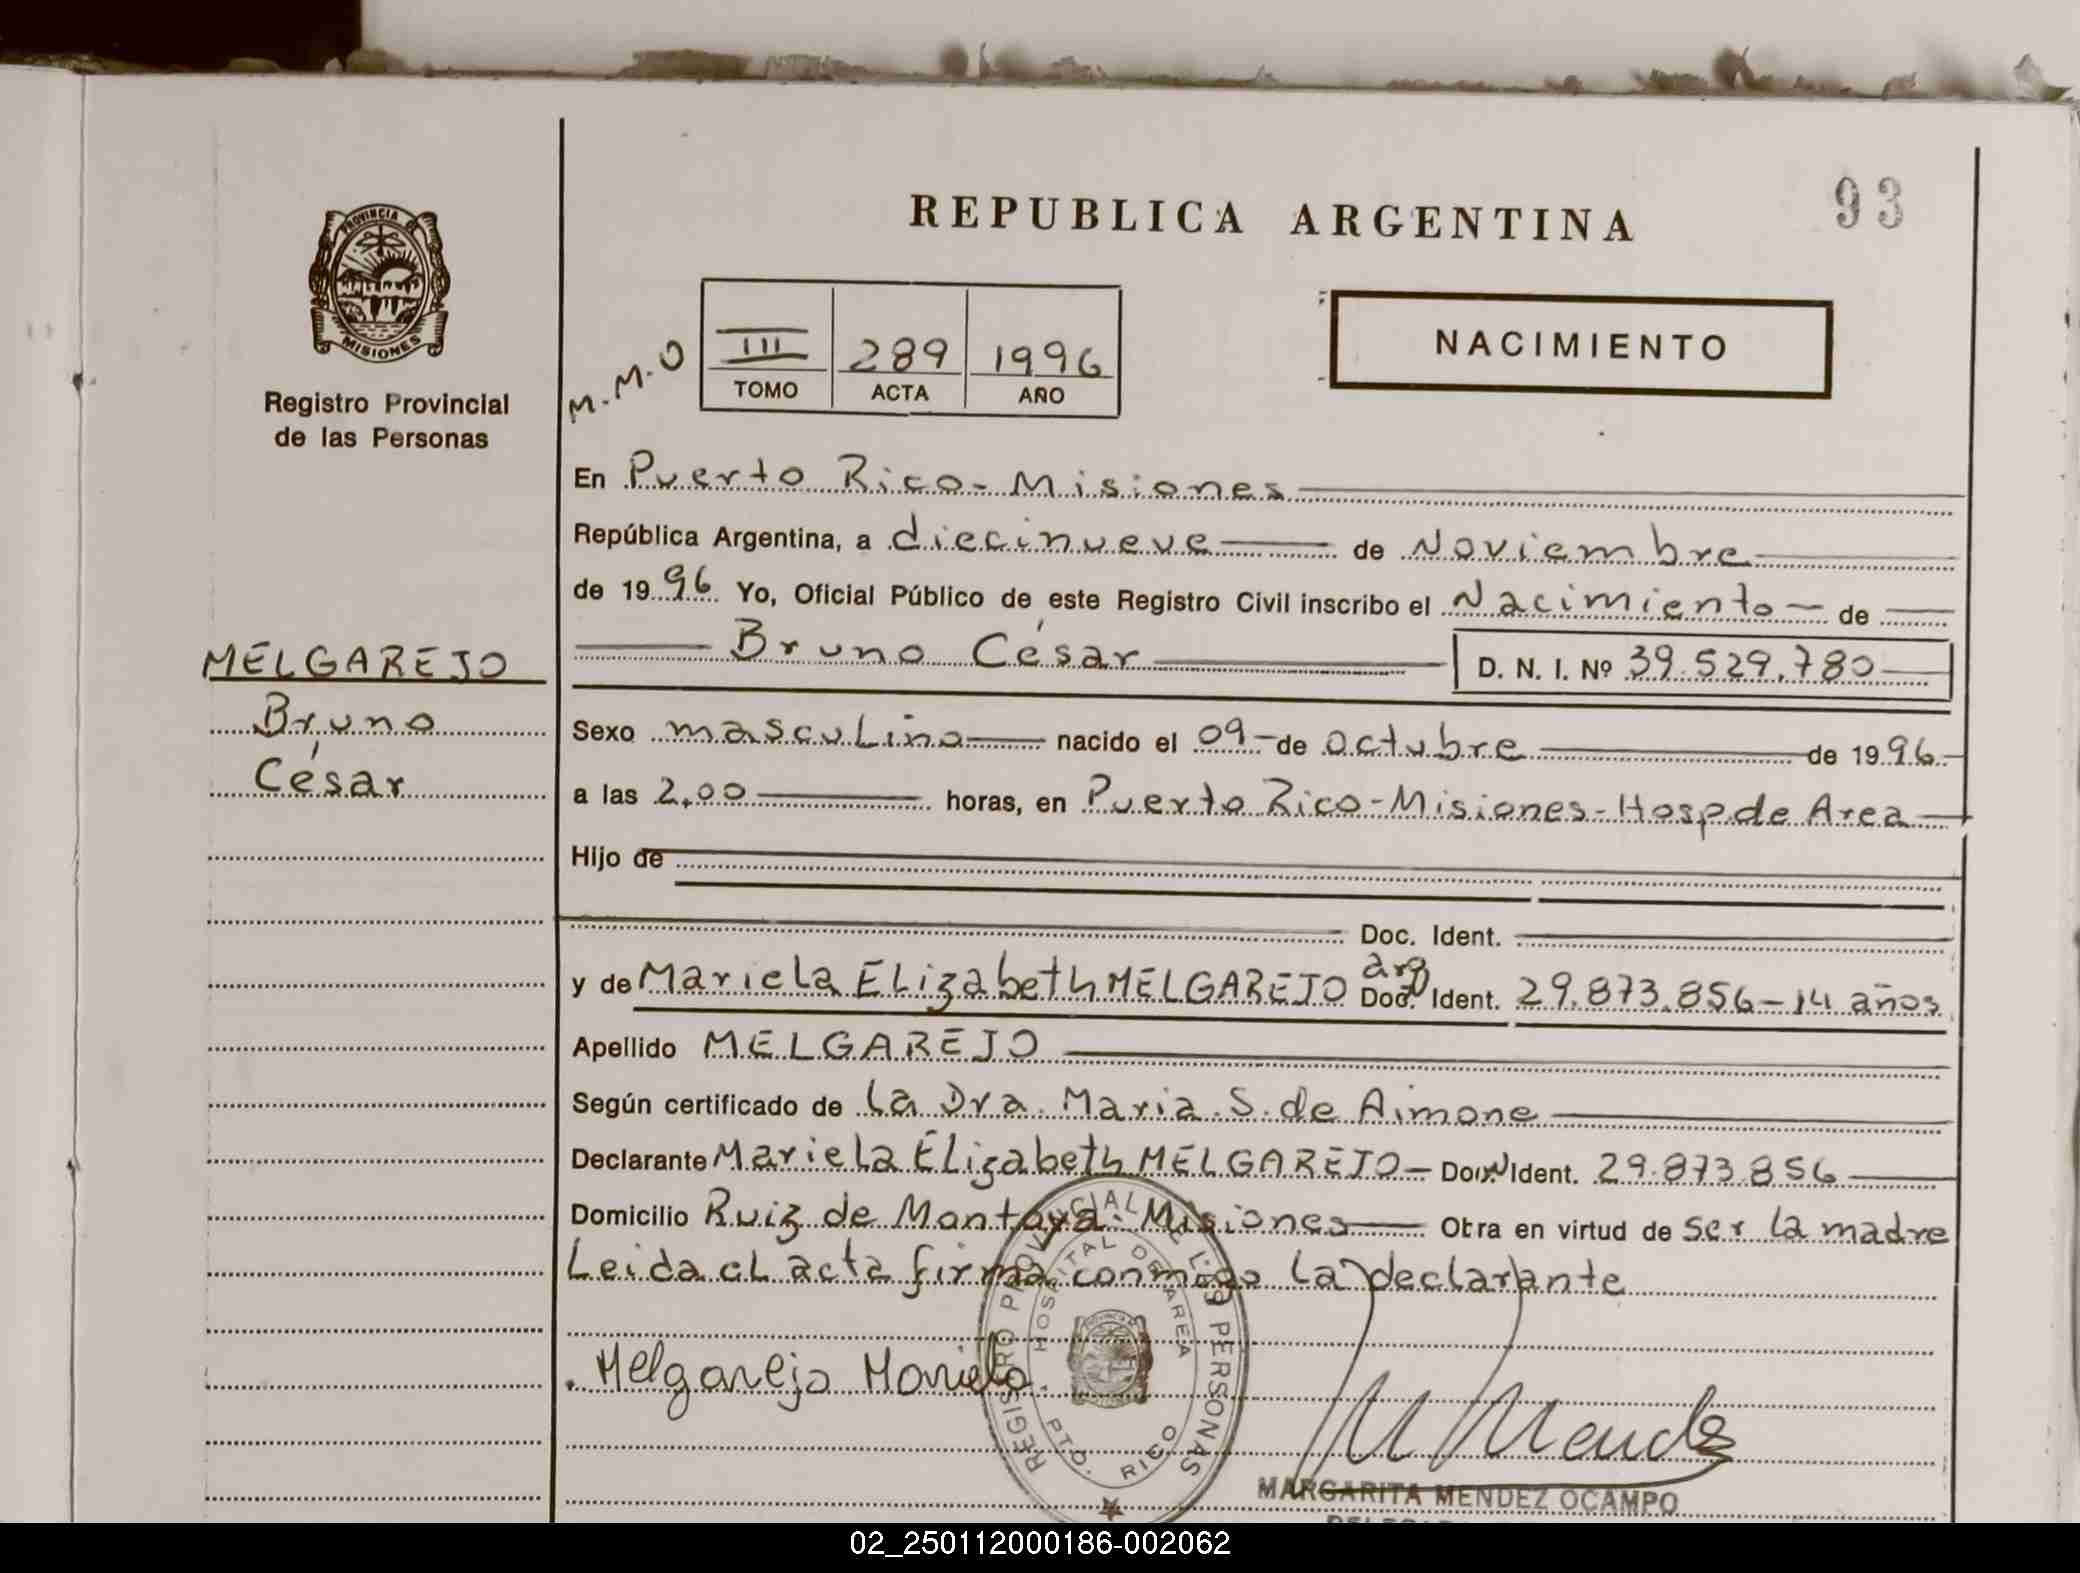 REPUBLICA ARGENTINA
93
PROVINCIA
MISIONES
Registro Provincial
de las Personas
M.M.O
III 289 1996
TOMO ACTA AÑO
NACIMIENTO
En Puerto Rico - Misiones
República Argentina, a diecinueve de Noviembre
de 1996 Yo, Oficial Público de este Registro Civil inscribo el Nacimiento de
Bruno César D. N. I. Nº 39.529.780
MELGAREJO
Bruno
César
Sexo masculino nacido el 09 de octubre de 1996
a las 2,00 horas, en Puerto Rico - Misiones - Hosp de Area
Hijo de
Doc. Ident.
y de Mariela Elizabeth MELGAREJO arg Doc. Ident. 29.873.856 - 14 años
Apellido MELGAREJO
Según certificado de La Dra. Maria S. de Aimone
Declarante Mariela Elizabeth MELGAREJO - Ident. 29.873.856
Domicilio Ruiz de Montoya. Misiones Obra en virtud de ser la madre
Leida el acta firma conmigo la declarante
Melgarejo Mariela
REGISTRO PROVINCIAL DE LAS PERSONAS
HOSPITAL DE AREA
PTO. RICO
M Mendez
MARGARITA MENDEZ OCAMPO
02_250112000186-002062